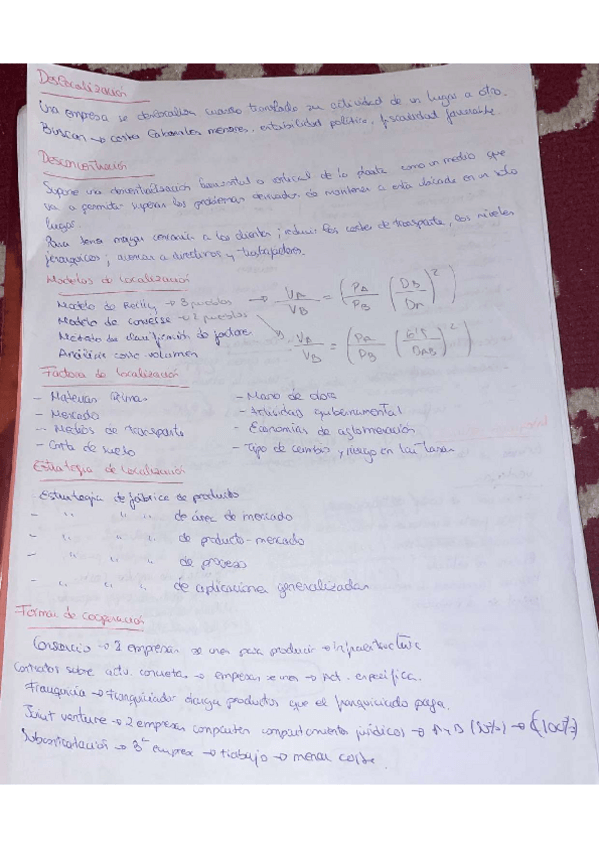 Deslocalización
Una empresa se deslocaliza cuando traslada su actividad de un lugar a otro.
Buscan → costes laborales menores, estabilidad política, fiscalidad favorable.
Desconcentración
Supone una descentralización horizontal o vertical de la planta como un medio que
va a permitir superar los problemas derivados de mantener a esta ubicada en un solo
lugar.
Para tener mayor cercanía a los clientes; reducir los costes de transporte, los niveles
jerárquicos; acercar a directivos y trabajadores.
Modelos de localización
Modelo de Reilly → 3 pueblos → VA/VB = (PA/PB (DB/DA)²)
Modelo de converse → 2 pueblos
Método de clasificación de factores → VA/VB = (PA/PB (6'5/DAB)²)
Análisis coste volumen
Factores de localización
- Materias primas - Mano de obra
- Mercado - Actividad gubernamental
- Medios de transporte - Economías de aglomeración
- Coste de suelo - Tipo de cambio y riesgo en las tasas
Estrategia de localización
Estrategia de fábrica de producto
- " " " de área de mercado
- " " " de producto-mercado
- " " " de proceso
- " " " de aplicaciones generalizadas
Formas de cooperación
Consorcio → 2 empresas se unen para producir → infraestructura
Contratos sobre activ. concretas → empresas se unen → act. específica.
Franquicia → franquiciador productos que el franquiciado paga.
Joint venture → 2 empresas comparten comportamientos jurídicos → A y B (50%) → C (100%)
Subcontratación → 3ª empresa → trabajo → menor coste.